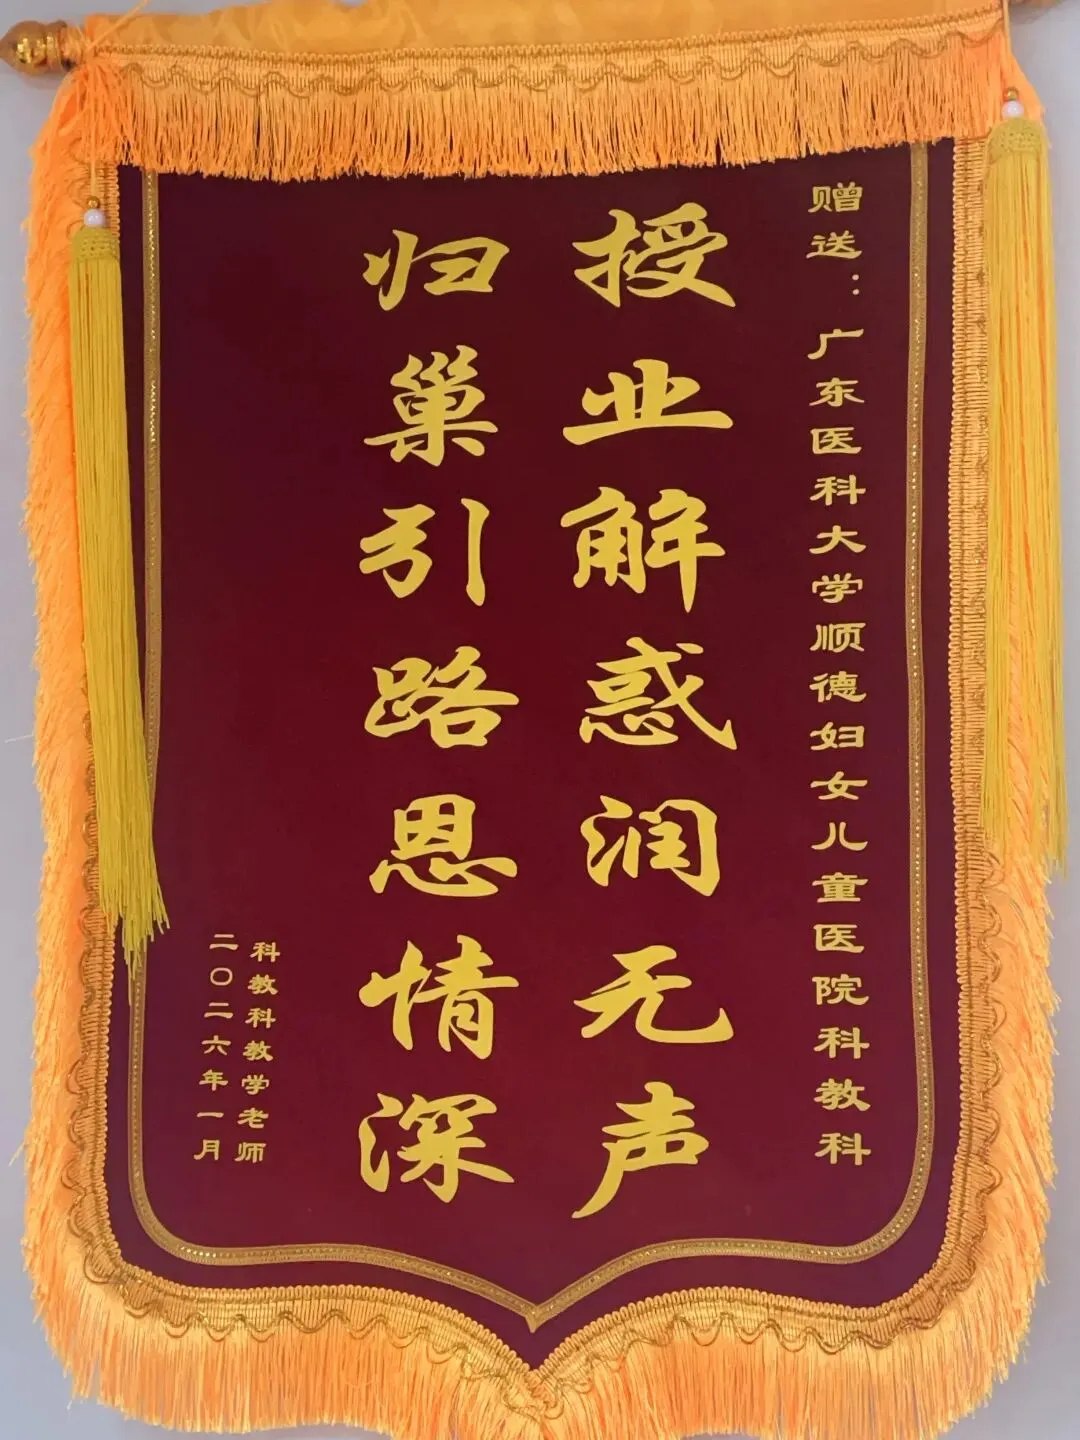 赠送：广东医科大学顺德妇女儿童医院科教科
授业解惑润无声
归巢引路恩情深
科教科教学老师
二〇二六年一月